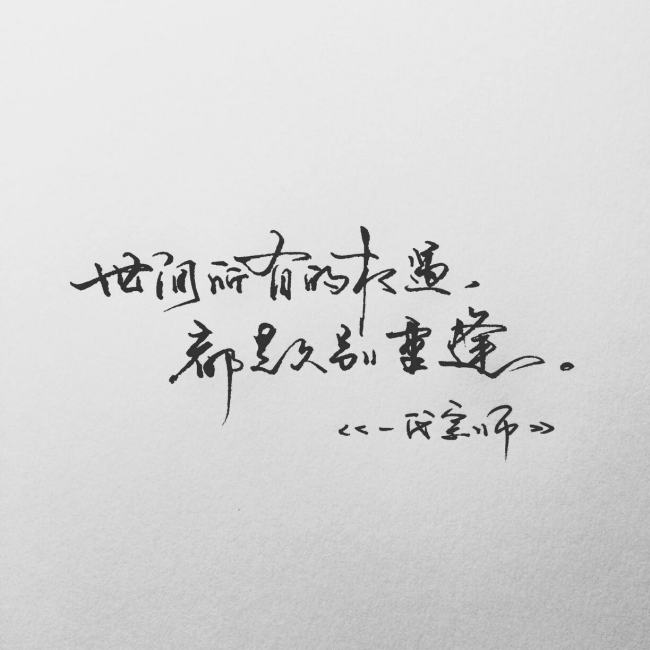 世间所有的相遇，
都是久别重逢。
<<一代宗师>>